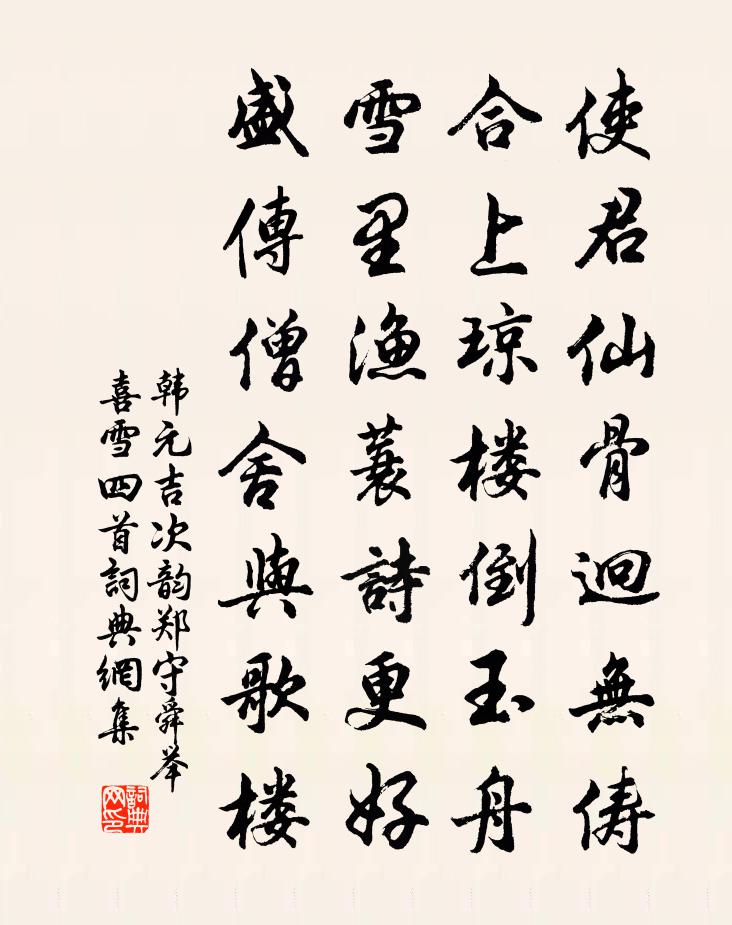 使君仙骨迥無俦
合上琼楼倒玉舟
雪里渔蓑詩更好
盛傳僧舍與歌楼
韩元吉次韵郑守舜举
喜雪四首詞典網集
詞典
网印